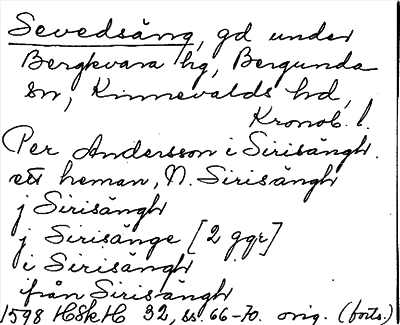 Sevedsäng, gd under
Bergkvara hg, Bergunda
sn, Kinnevalds hd,
Kronob. l.
Per Andersson i Sirisängh.
ett heman, N. Sirisängh
j Sirisängh
j Sirisänge [2 ggr]
i Sirisängh
från Sirisängh
1598 HSkH 32, ss. 66-70. orig. (forts.)